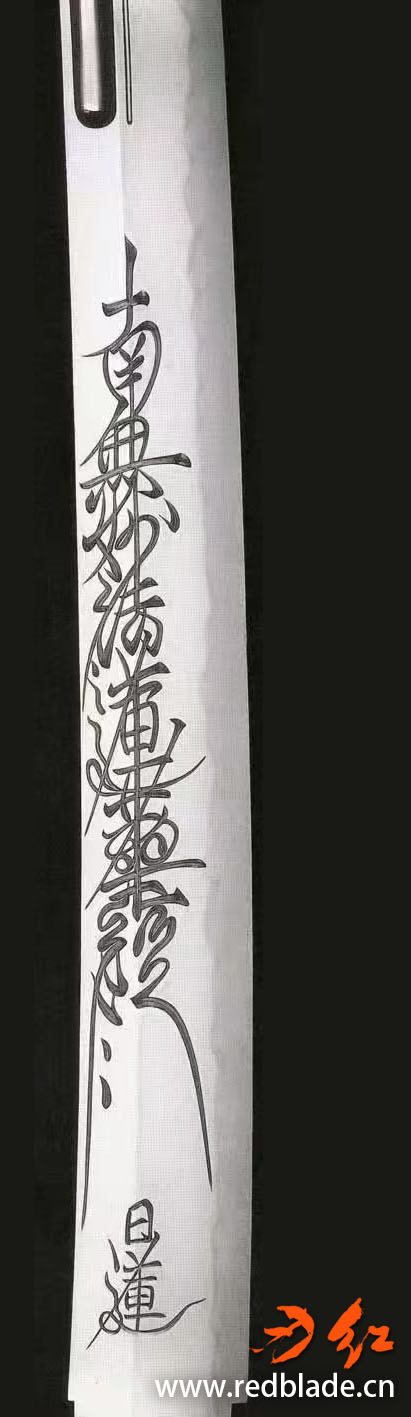 南無妙法蓮華經
日蓮
刃红
www.redblade.cn